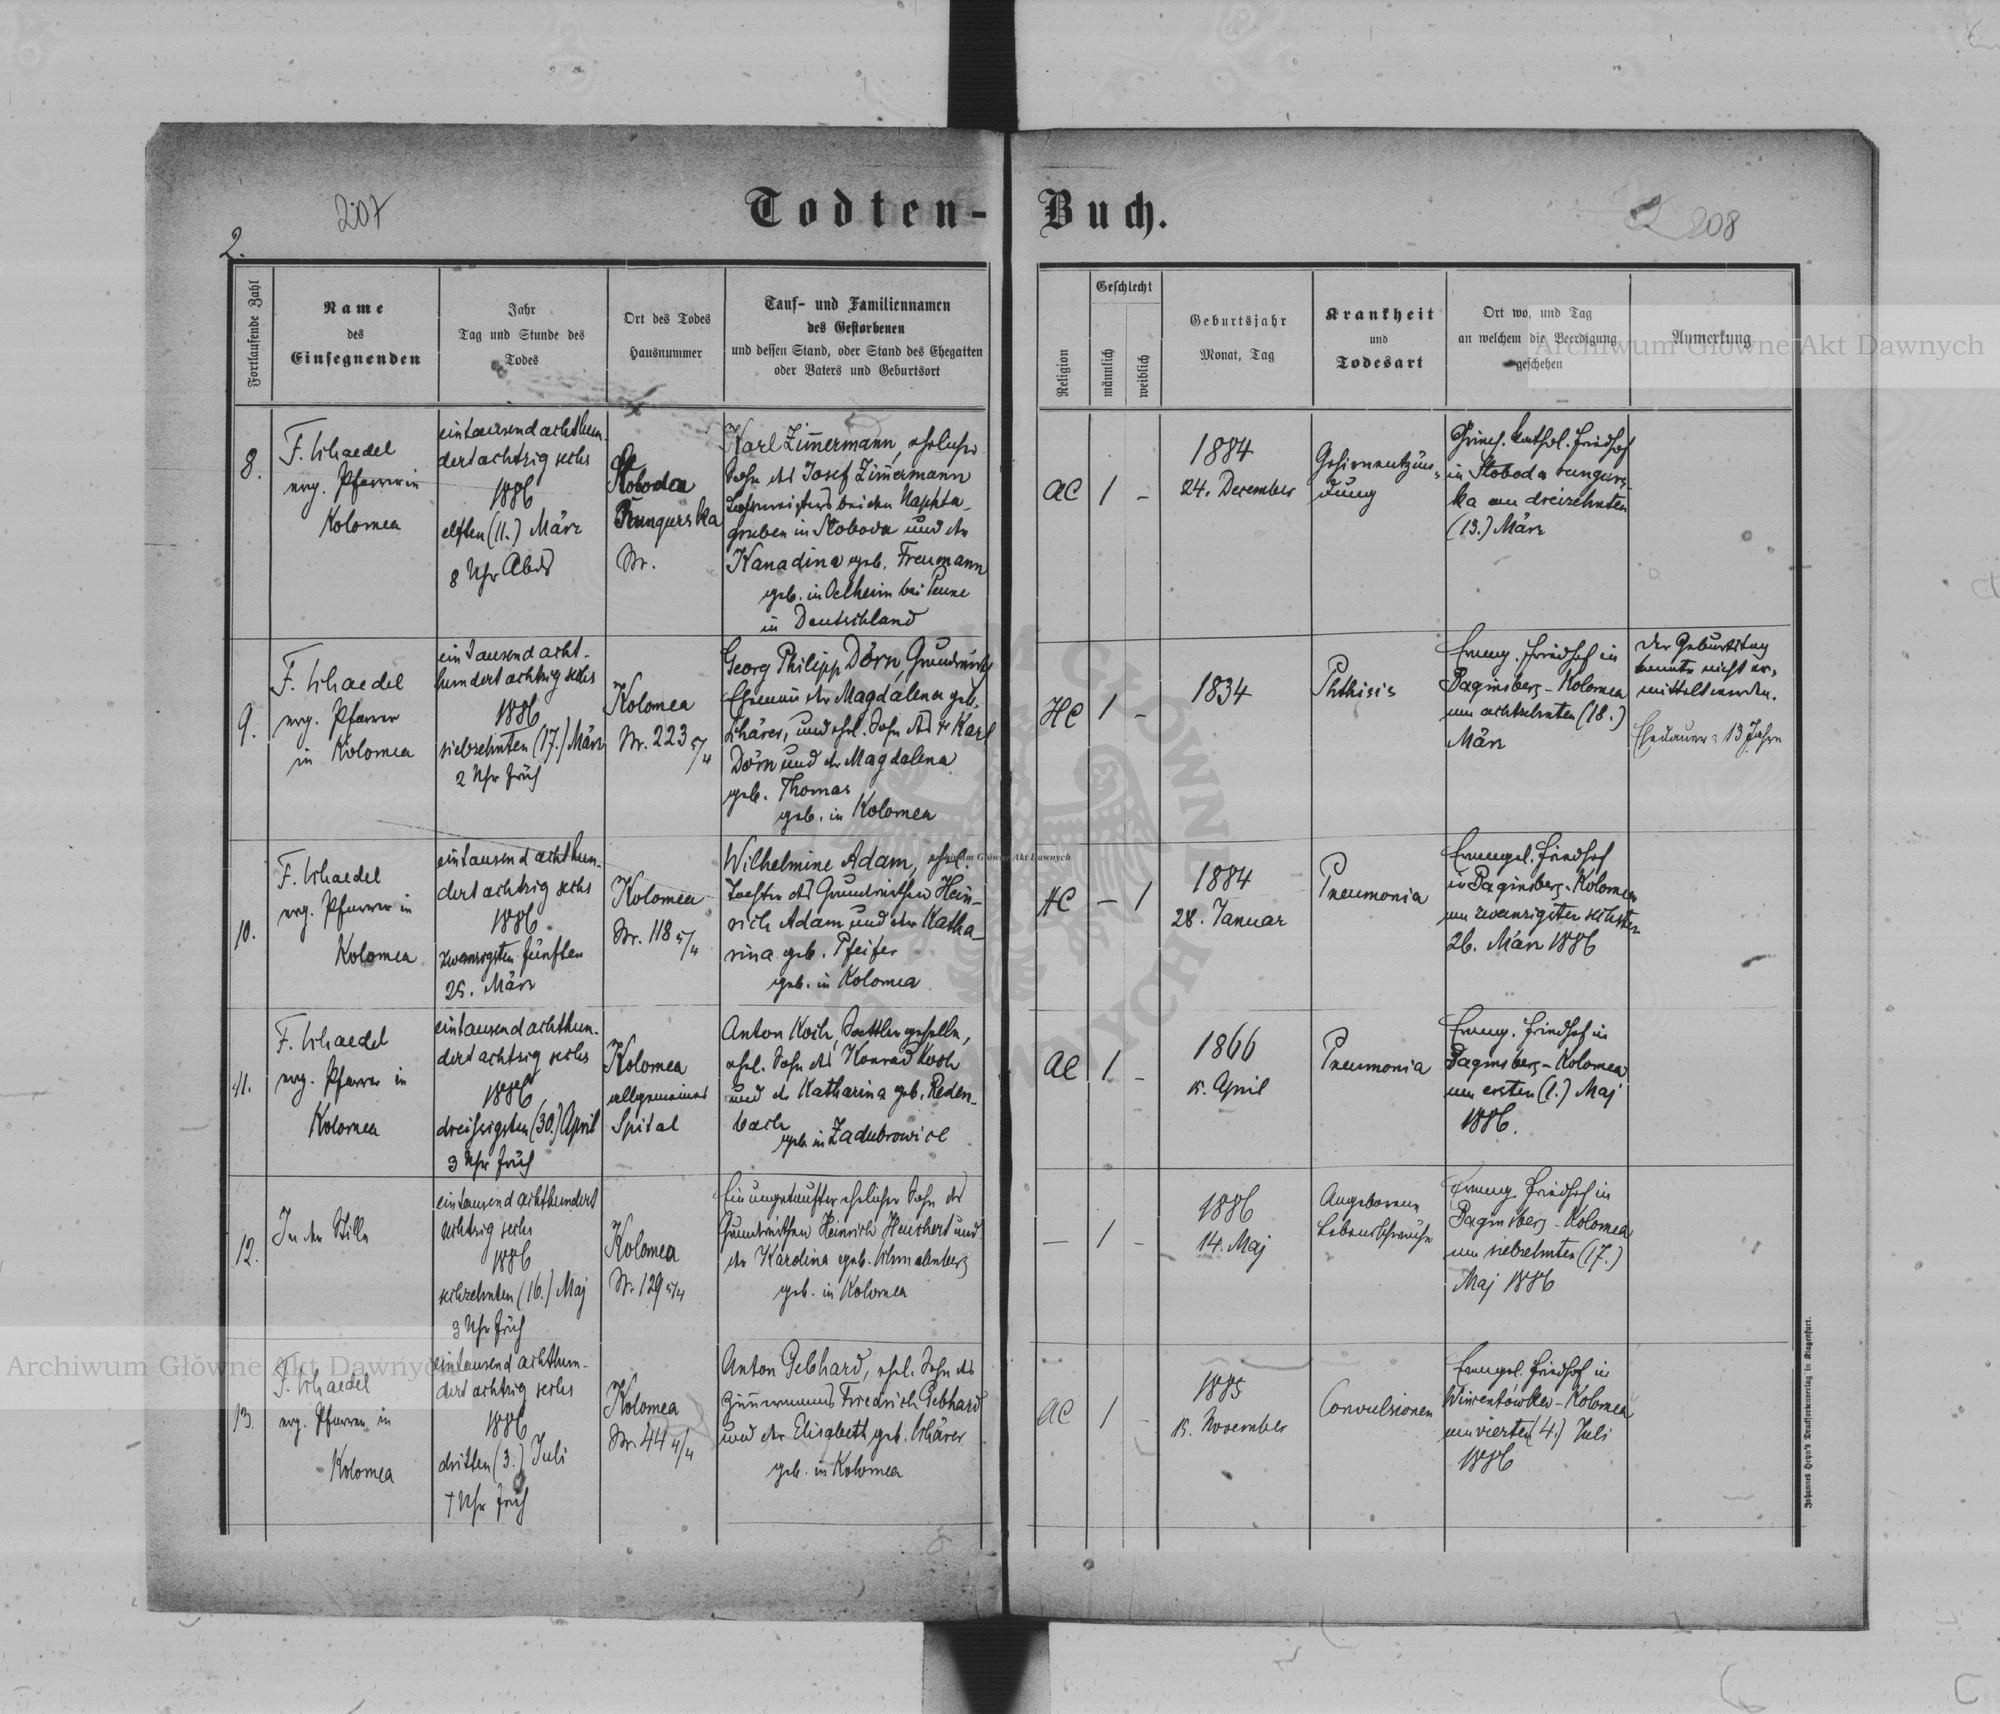 207
Todten-Buch.
208
2.
Fortlaufende Zahl
Name
des
Einsegnenden
Jahr
Tag und Stunde des
Todes
Ort des Todes
Hausnummer
Tauf- und Familiennamen
des Gestorbenen
und dessen Stand, oder Stand des Ehegatten
oder Vaters und Geburtsort
Religion
Geschlecht
männlich
weiblich
Geburtsjahr
Monat, Tag
Krankheit
und
Todesart
Ort wo, und Tag
an welchem die Beerdigung
geschehen
Anmerkung
8.
F. Schaedel
evg. Pfarrer in
Kolomea
eintausend achthun-
dert achtzig sechs
1886
elften (11.) März
8 Uhr Abds
Sloboda
Rungurska
Nr.
Karl Zimmermann, ehelicher
Sohn des Josef Zimmermann
bei den Naphta-
gruben in Sloboda und der
Kanadina geb. Freumann
geb. in Oelheim bei Peine
in Deutschland
AC
1
-
1884
24. December
Gehirnentzün-
dung
Griech. kathol. Friedhof
in Sloboda rungurs-
ka am dreizehnten
(13.) März
9.
F. Schaedel
evg. Pfarrer
in Kolomea
ein Tausend acht-
hundert achtzig sechs
1886
siebzehnten (17.) März
2 Uhr früh
Kolomea
Nr. 223 5/4
Georg Philipp Dörn, Grundwirth
Ehemann der Magdalena geb.
Schärer, und ehel. Sohn des † Karl
Dörn und der Magdalena
geb. Thomas
geb. in Kolomea
HC
1
-
1834
Phthisis
Evang. Friedhof in
Baginsberg - Kolomea
am achtzehnten (18.)
März
Der Geburtstag
konnte nicht er-
mittelt werden.
Ehedauer: 13 Jahre
10.
F. Schaedel
evg. Pfarrer in
Kolomea
eintausend achthun-
dert achtzig sechs
1886
zwanzigsten fünften
25. März
Kolomea
Nr. 118 5/4
Wilhelmine Adam, ehel.
Tochter des Grundwirthen Hein-
rich Adam und der Katha-
rina geb. Pfeifer
geb. in Kolomea
HC
-
1
1884
28. Januar
Pneumonia
Evangel. Friedhof
in Baginsberg - Kolomea
am zwanzigsten sechsten
26. März 1886
11.
F. Schaedel
evg. Pfarrer in
Kolomea
eintausend achthun-
dert achtzig sechs
1886
dreissigsten (30.) April
3 Uhr früh
Kolomea
allgemeines
Spital
Anton Koch, Sattlergeselle,
ehel. Sohn des Konrad Koch
und der Katharina geb. Reden-
bach
geb. in Zadubrowice
AC
1
-
1866
15. April
Pneumonia
Evang. Friedhof in
Baginsberg - Kolomea
am ersten (1.) Maj
1886.
12.
In der Stille
eintausend achthundert
achtzig sechs
1886
sechzehnten (16.) Maj
3 Uhr früh
Kolomea
Nr. 129 5/4
Ein ungetaufter ehelicher Sohn des
Grundwirthen Heinrich Heuchert und
der Karolina geb. Schmalenberg
geb. in Kolomea
-
1
-
1886
14. Maj
Angeborene
Lebensschwäche
Evang. Friedhof in
Baginsberg - Kolomea
am siebzehnten (17.)
Maj 1886
13.
F. Schaedel
evg. Pfarrer in
Kolomea
eintausend achthun-
dert achtzig sechs
1886
dritten (3.) Juli
Uhr früh
Kolomea
Nr. 44 4/4
Anton Gebhard, ehel. Sohn des
Zimmermanns Friedrich Gebhard
und der Elisabeth geb. Schärer
geb. in Kolomea
AC
1
-
1885
15. November
Convulsionen
Evangel. Friedhof in
Wincentówka - Kolomea
am vierten (4.) Juli
1886
Johannes Heyn's Drucksortenverlag in Klagenfurt.
Archiwum Główne Akt Dawnych
Archiwum Główne Akt Dawnych
Archiwum Główne Akt Dawnych